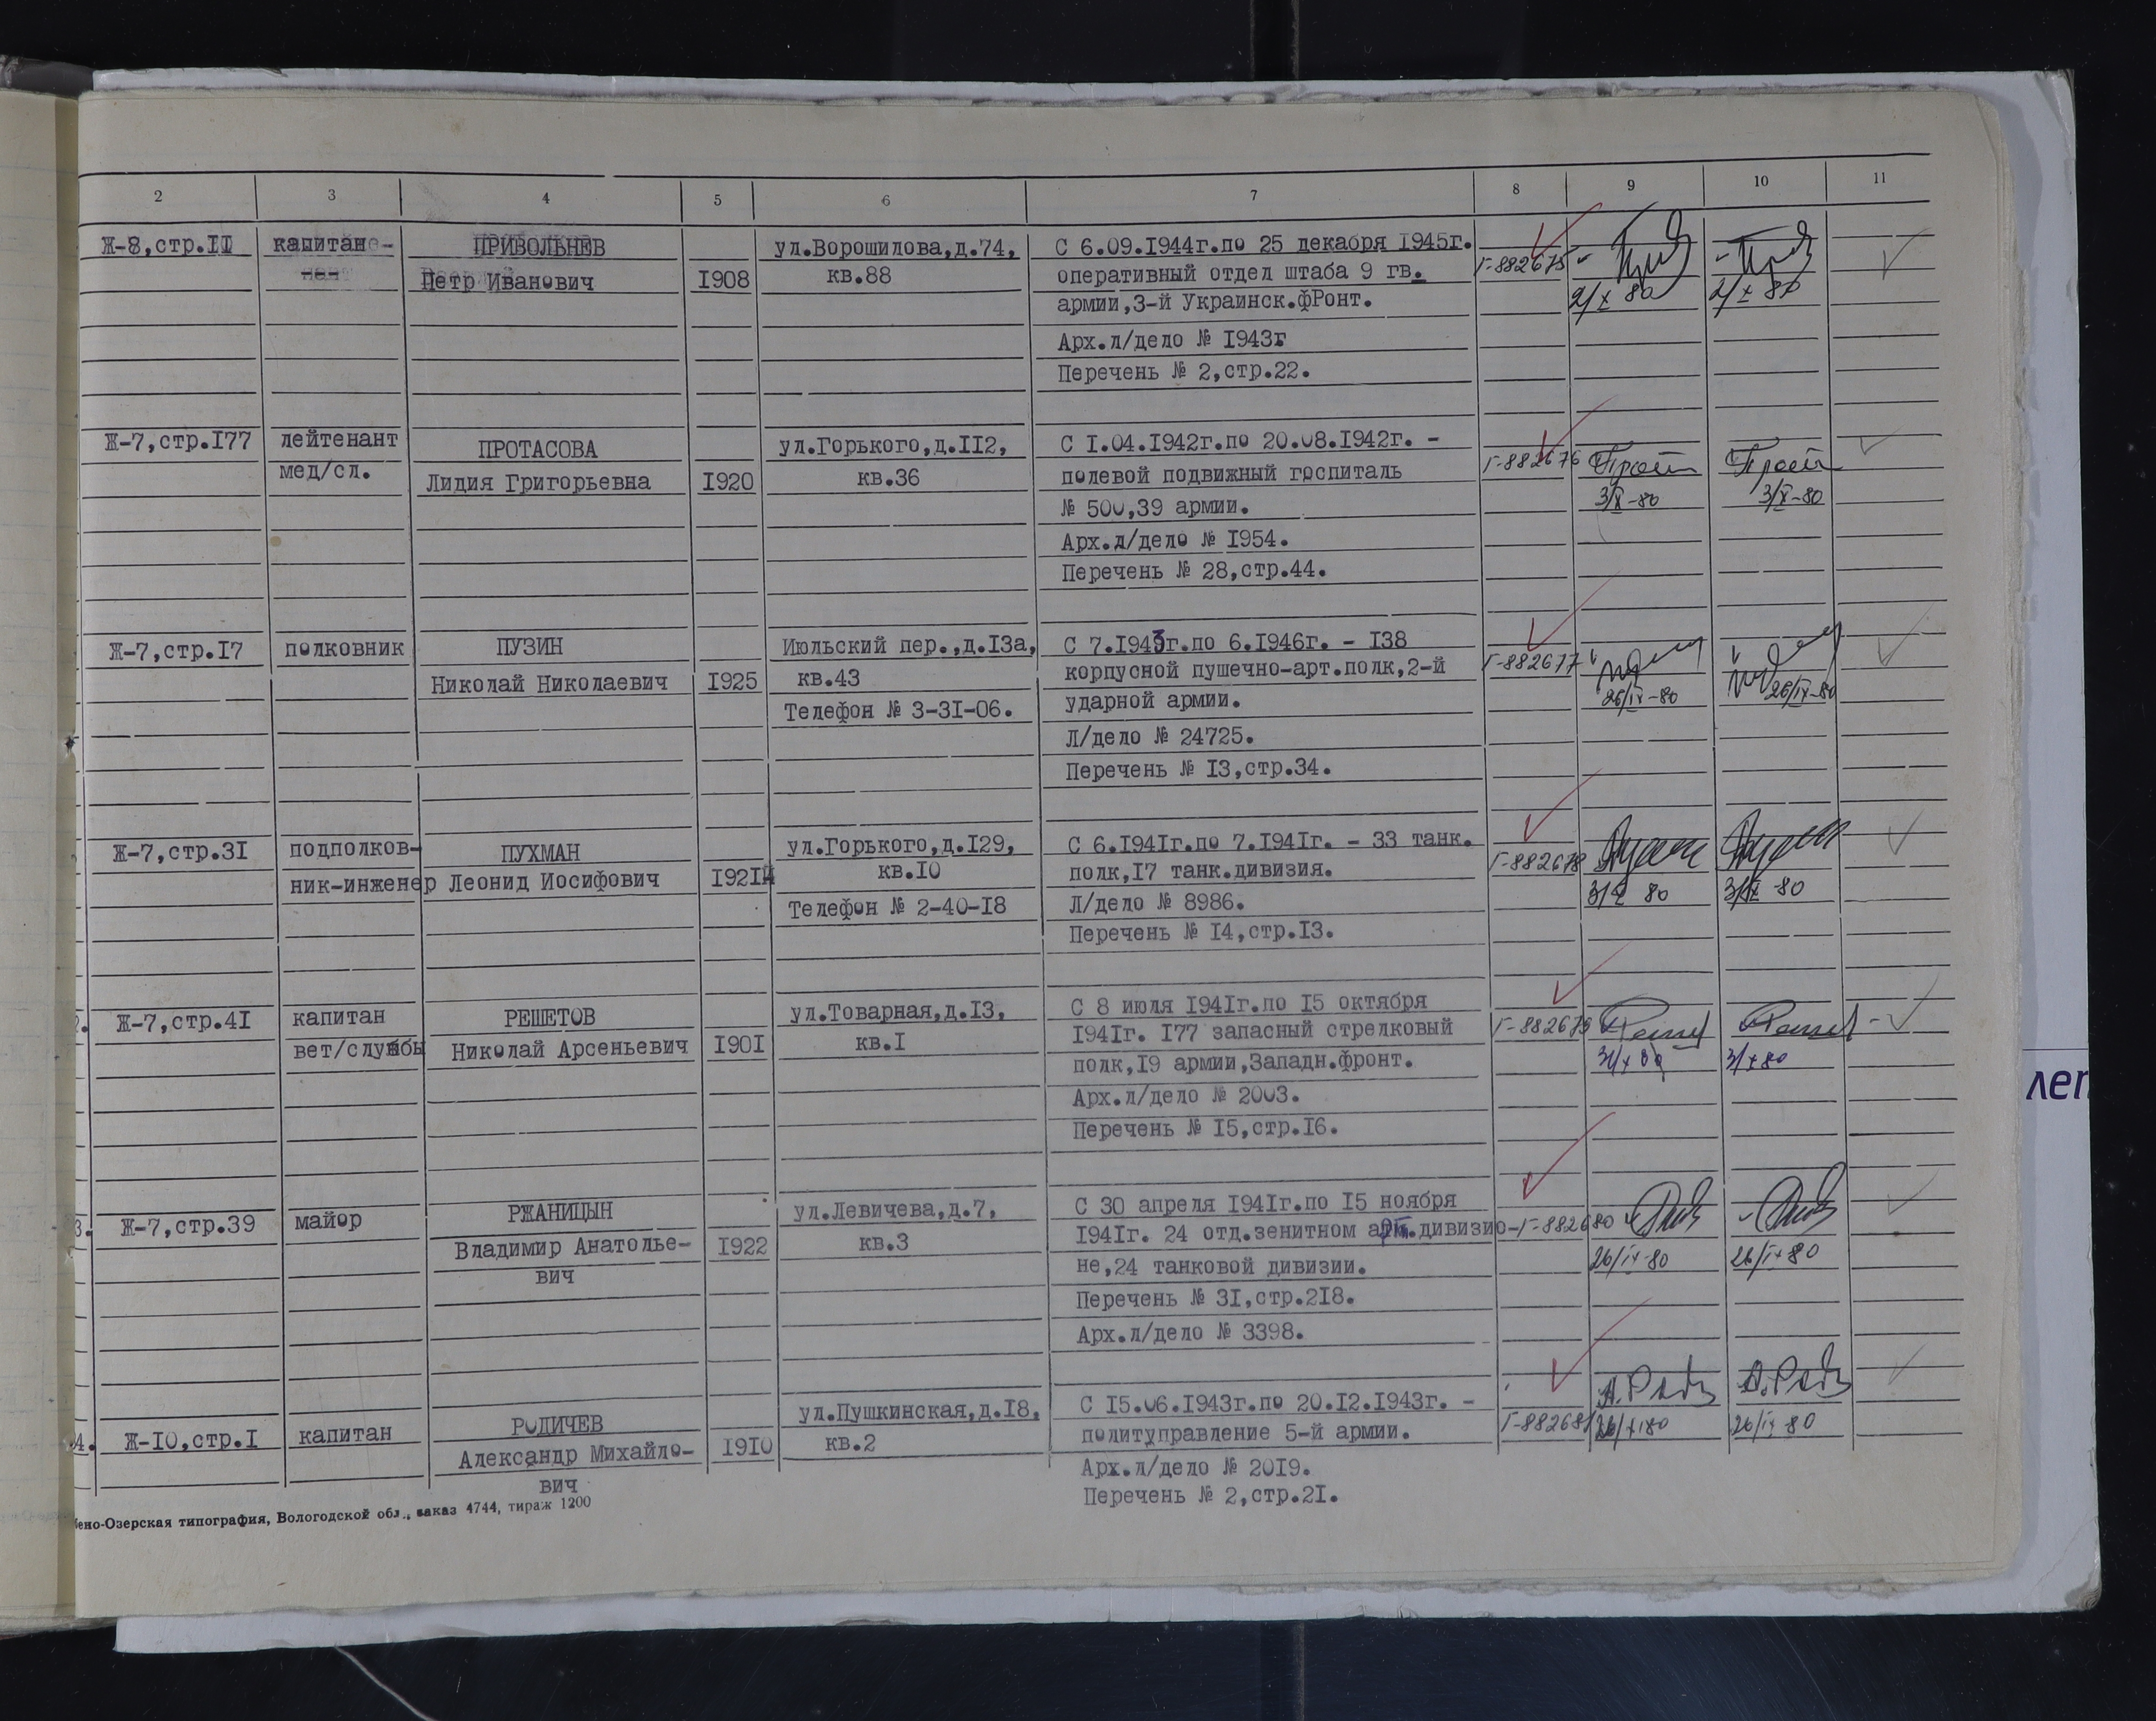 2 3 4 5 6 7 8 9 10 11
Ж-8,стр.II капитан ПРИВОЛЬНЕВ ул.Ворошилова,д.74, С 6.09.1944г.по 25 декабря 1945г.
Петр Иванович 1908 кв.88 оперативный отдел штаба 9 гв. Г-882675
армии,3-й Украинск.фРонт. 2/X 80 2/X 80
Арх.л/дело № 1943г
Перечень № 2,стр.22.
Ж-7,стр.I77 лейтенант ПРОТАСОВА ул.Горького,д.II2, С I.04.1942г.по 20.08.1942г. -
мед/сл. Лидия Григорьевна I920 кв.36 полевой подвижный госпиталь Г-882676
№ 500,39 армии. 3/X-80 3/X-80
Арх.л/дело № I954.
Перечень № 28,стр.44.
Ж-7,стр.I7 полковник ПУЗИН Июльский пер.,д.I3а, С 7.1943г.по 6.1946г. - I38
Николай Николаевич I925 кв.43 корпусной пушечно-арт.полк,2-й Г-882677
Телефон № 3-3I-06. ударной армии. 26/IX-80 26/IX-80
Л/дело № 24725.
Перечень № I3,стр.34.
Ж-7,стр.3I подполков- ПУХМАН ул.Горького,д.I29, С 6.I94Iг.по 7.I94Iг. - 33 танк.
ник-инженер Леонид Иосифович I92I кв.I0 полк,I7 танк.дивизия. Г-882678
Телефон № 2-40-I8 Л/дело № 8986. 80 80
Перечень № I4,стр.I3.
2. Ж-7,стр.4I капитан РЕШЕТОВ ул.Товарная,д.I3, С 8 июля I94Iг.по I5 октября
вет/службы Николай Арсеньевич I90I кв.I I94Iг. I77 запасный стрелковый Г-882679
полк,I9 армии,Западн.фронт. 3/X 80 3/X 80
Арх.л/дело № 2003.
Перечень № I5,стр.I6.
3. Ж-7,стр.39 майор РЖАНИЦЫН ул.Левичева,д.7, С 30 апреля I94Iг.по I5 ноября
Владимир Анатолье- I922 кв.3 I94Iг. 24 отд.зенитном арт.дивизио- Г-882680
вич не,24 танковой дивизии. 26/IX-80 26/IX 80
Перечень № 3I,стр.2I8.
Арх.л/дело № 3398.
4. Ж-I0,стр.I капитан РОДИЧЕВ ул.Пушкинская,д.I8, С I5.06.I943г.по 20.I2.I943г. -
Александр Михайло- I9I0 кв.2 политуправление 5-й армии. Г-882681 80 26/IX 80
вич Арх.л/дело № 20I9.
Перечень № 2,стр.2I.
ено-Озерская типография, Вологодской обл., заказ 4744, тираж 1200